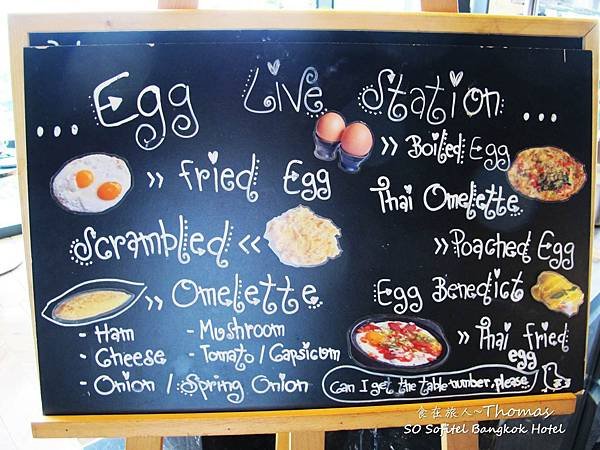 ... Egg Live Station ...
» Fried Egg
Scrambled «
» Omelette
- Ham
- Cheese
- Onion / Spring Onion
- Mushroom
- Tomato / Capsicum
» Boiled Egg
Thai Omelette
» Poached Egg
Egg Benedict
» Thai fried
egg
Can I get the table number, please.
食在旅人~Thomas
SO Sofitel Bangkok Hotel